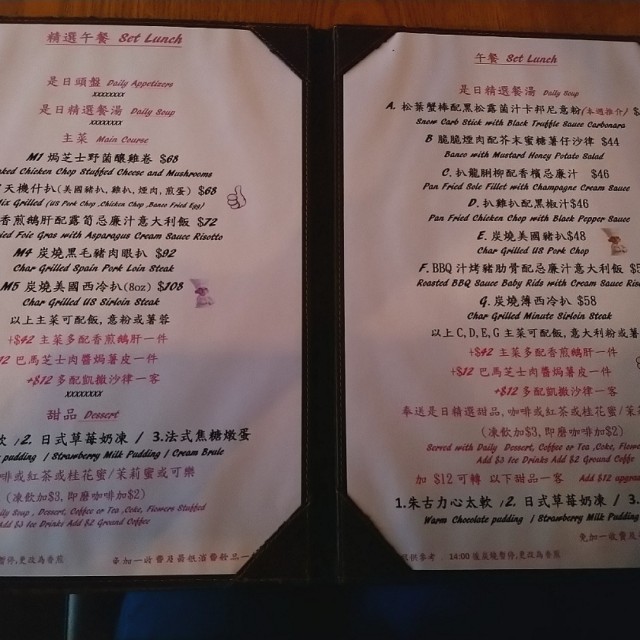 精選午餐 Set Lunch
是日頭盤 Daily Appetizers
xxxxxxxx
是日精選餐湯 Daily Soup
xxxxxxxx
主菜 Main Course
M1 焗芝士野菌釀雞卷 $68
aked Chicken Chop Stuffed Cheese and Mushrooms
天機什扒(美國豬扒, 雞扒, 煙肉, 煎蛋) $68
Mix Grilled (US Pork Chop, Chicken Chop, Banco Fried Egg)
香煎鵝肝配露筍忌廉汁意大利飯 $72
ried Foie Gras with Asparagus Cream Sauce Risotto
M4 炭燒黑毛豬肉眼扒 $92
Char Grilled Spain Pork Loin Steak
M5 炭燒美國西冷扒(8oz) $108
Char Grilled US Sirloin Steak
以上主菜可配飯, 意粉或薯蓉
+$42 主菜多配香煎鵝肝一件
12 巴馬芝士肉醬焗薯皮一件
+$12 多配凱撒沙律一客
xxxxxxxx
甜品 Dessert
軟 /2. 日式草莓奶凍 / 3.法式焦糖燉蛋
pudding / Strawberry Milk Pudding / Cream Brule
啡或紅茶或桂花蜜/茉莉蜜或可樂
(凍飲加$3, 即磨咖啡加$2)
aily Soup, Dessert, Coffee or Tea, Coke, Flowers Stuffed
Add $3 Ice Drinks Add $2 Ground Coffee
暫停,更改為香煎
午餐 Set Lunch
是日精選餐湯 Daily Soup
A. 松葉蟹棒配黑松露菌汁卡邦尼意粉(本週推介) $
Snow Carb Stick with Black Truffle Sauce Carbonara
B 脆脆煙肉配芥末蜜糖薯仔沙律 $44
Banco with Mustard Honey Potato Salad
C. 扒龍脷柳配香檳忌廉汁 $46
Pan Fried Sole Fillet with Champagne Cream Sauce
D. 扒雞扒配黑椒汁$46
Pan Fried Chicken Chop with Black Pepper Sauce
E. 炭燒美國豬扒$48
Char Grilled US Pork Chop
F. BBQ 汁烤豬肋骨配忌廉汁意大利飯 $5
Roasted BBQ Sauce Baby Rids with Cream Sauce Ris
G. 炭燒薄西冷扒 $58
Char Grilled Minute Sirloin Steak
以上C, D, E, G 主菜可配飯, 意大利粉或薯
+$42 主菜多配香煎鵝肝一件
+$12 巴馬芝士肉醬焗薯皮一件
+$12 多配凱撒沙律一客
奉送是日精選甜品, 咖啡或紅茶或桂花蜜/茉
(凍飲加$3, 即磨咖啡加$2)
Served with Daily Dessert, Coffee or Tea, Coke, Flowe
Add $3 Ice Drinks Add $2 Ground Coffe
加 $12可轉 以下甜品一客 Add $12 upgra
1.朱古力心太軟 /2. 日式草莓奶凍 / 3.
Warm Chocolate pudding / Strawberry Milk Pudding
供參考 14:00 後炭燒暫停,更改為香煎